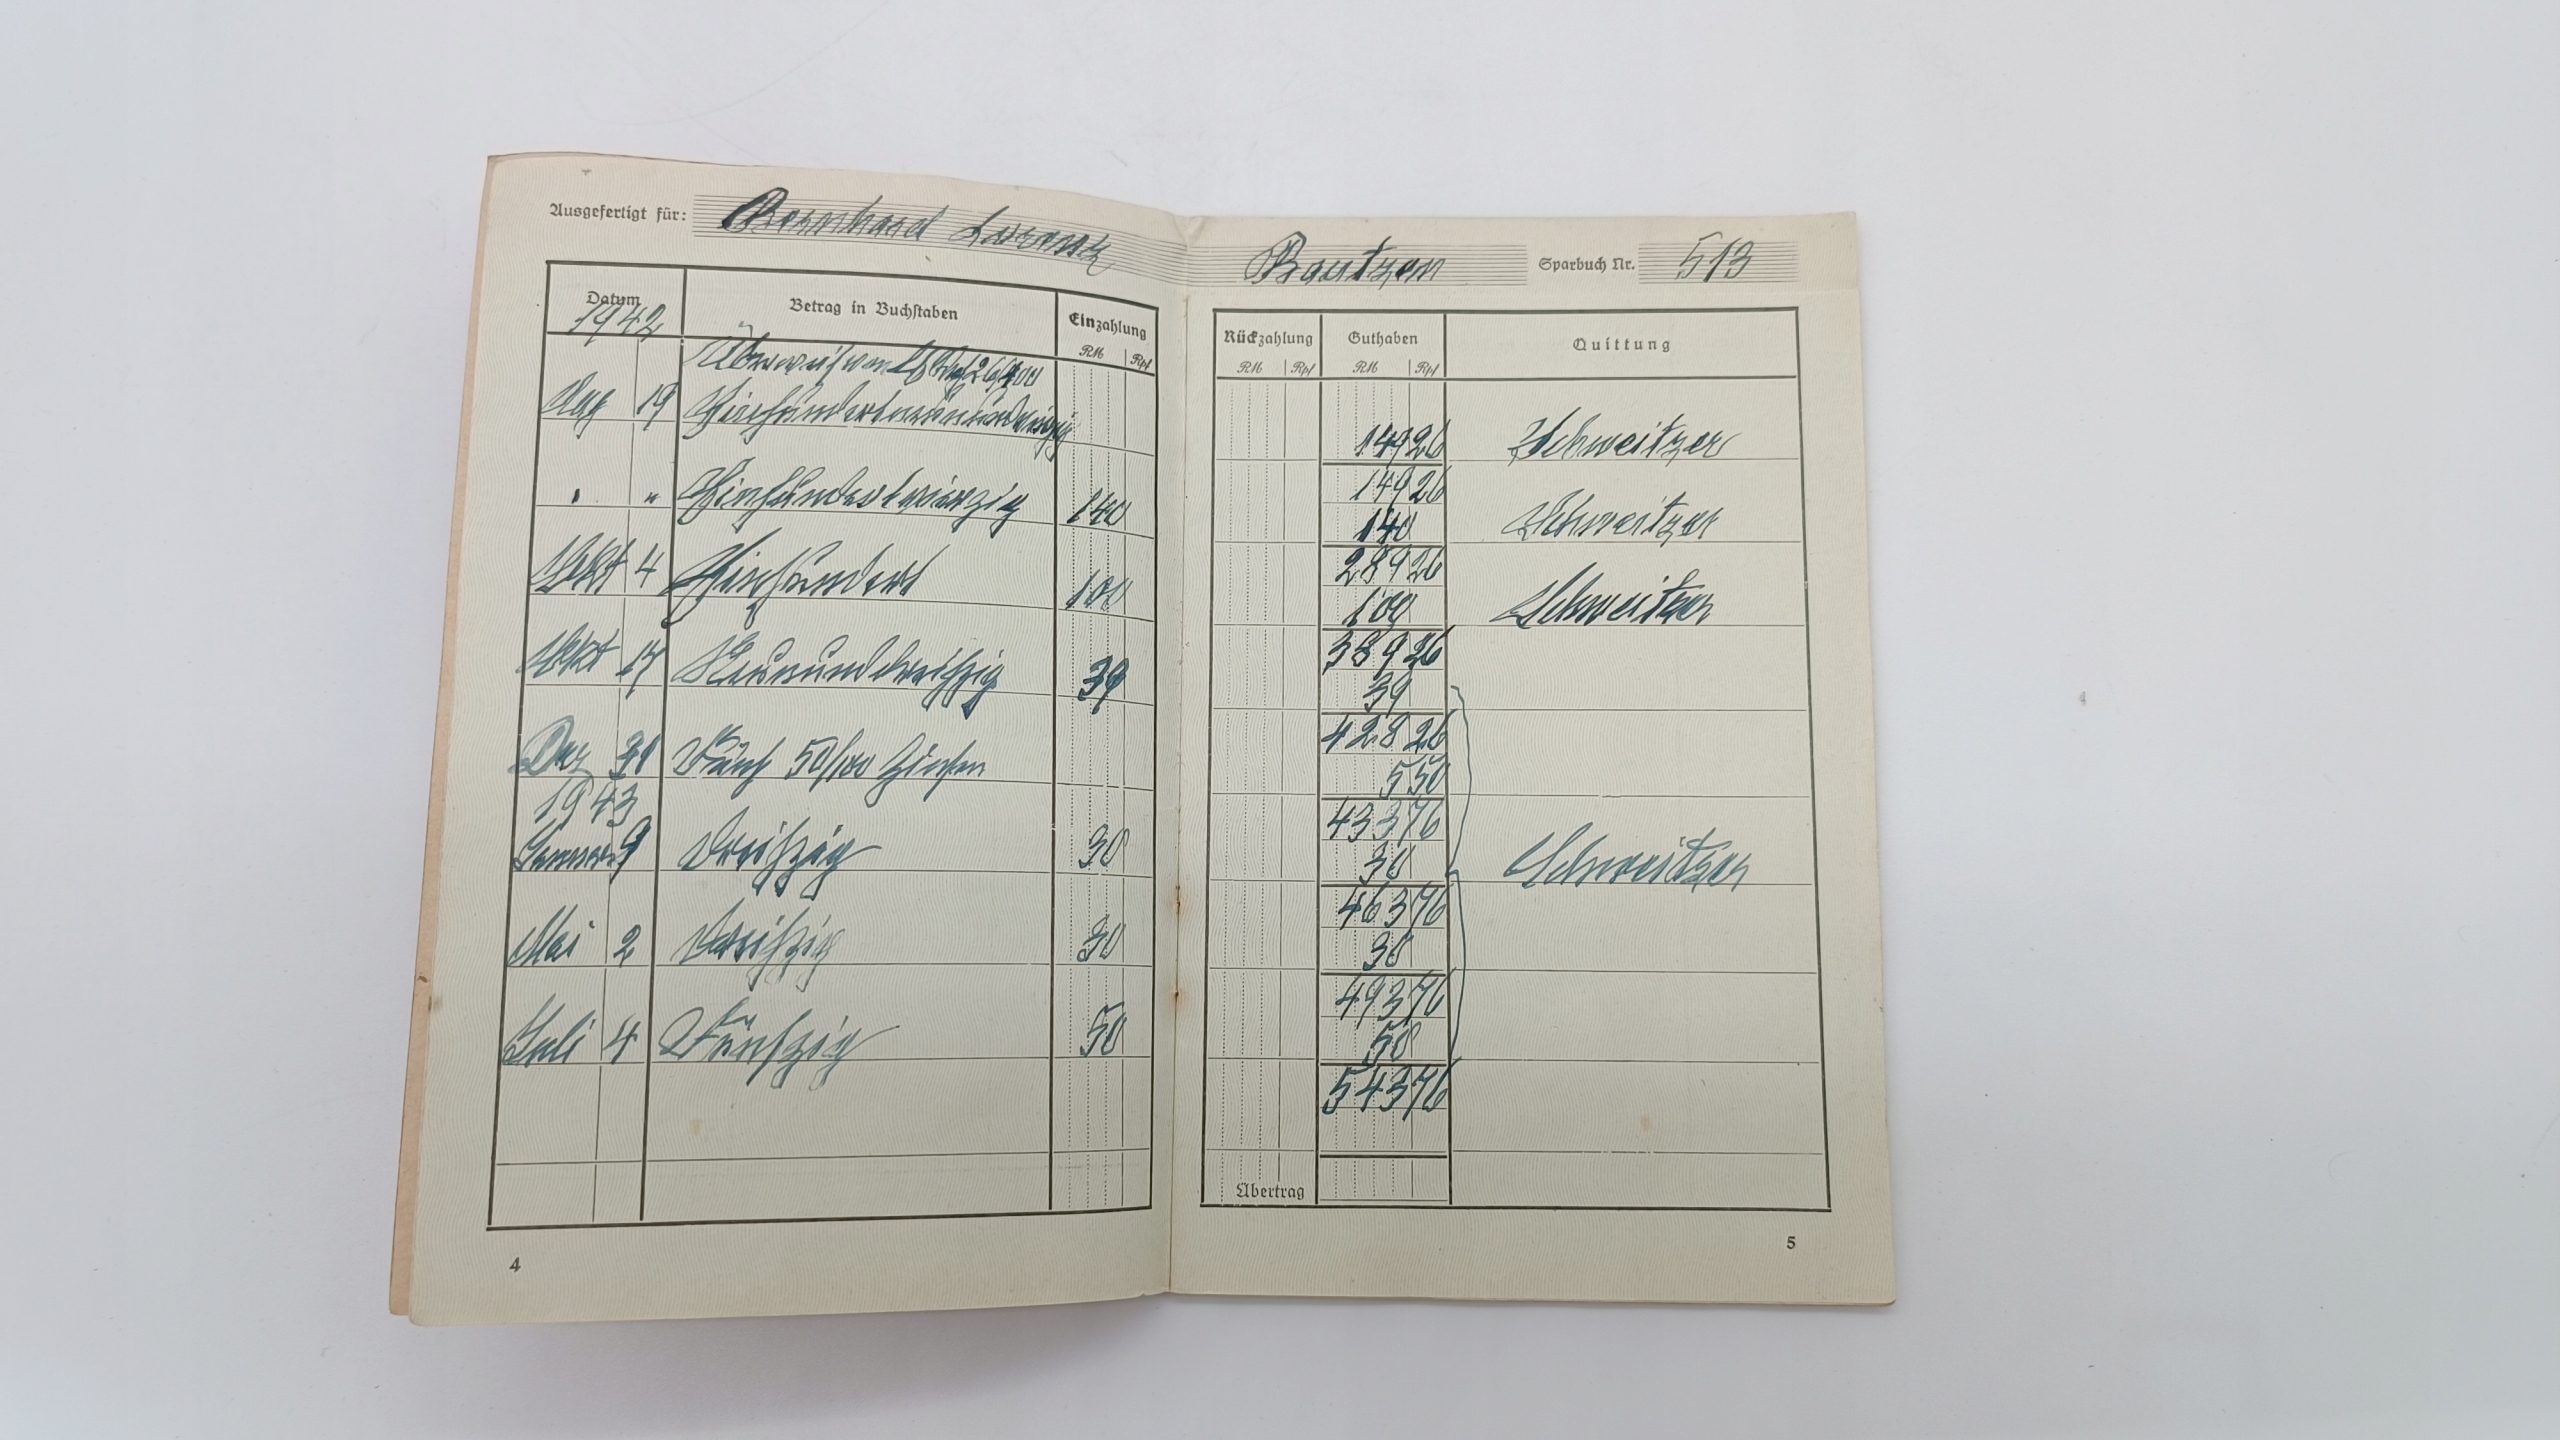 Ausgefertigt für: Bernhard Lorenz Bautzen Sparbuch Nr. 513
Datum Betrag in Buchstaben Einzahlung Rückzahlung Guthaben Quittung
1942 RM Rpf RM Rpf RM Rpf
Aug 19 149 26 Schweitzer
149 26
" " Einhundertvierzig 140 140 Schweitzer
289 26
Sept 4 Einhundert 100 100 Schweitzer
389 26
17 Neununddreißig 39 39
428 26
Dez 31 Fünf 50/100 Zinsen 5 50
1943 433 76
Januar 9 Dreißig 30 30 Schweitzer
463 76
Mai 2 Dreißig 30 30
493 76
Juli 4 Fünfzig 50 50
543 76
Übertrag
4 5